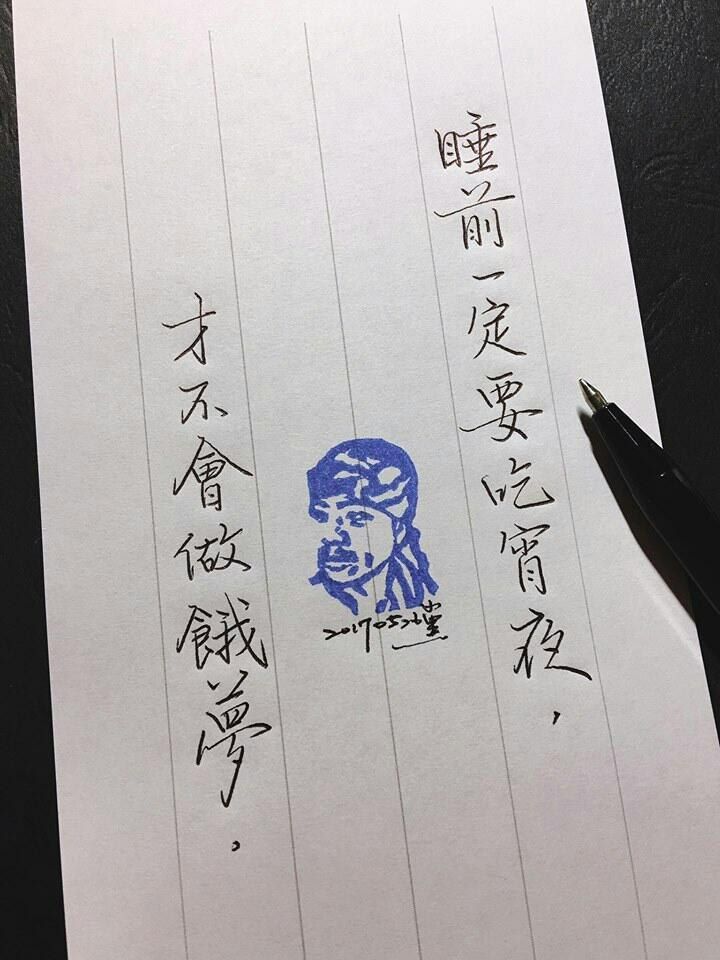 睡前一定要吃宵夜，
才不會做餓夢．
201705